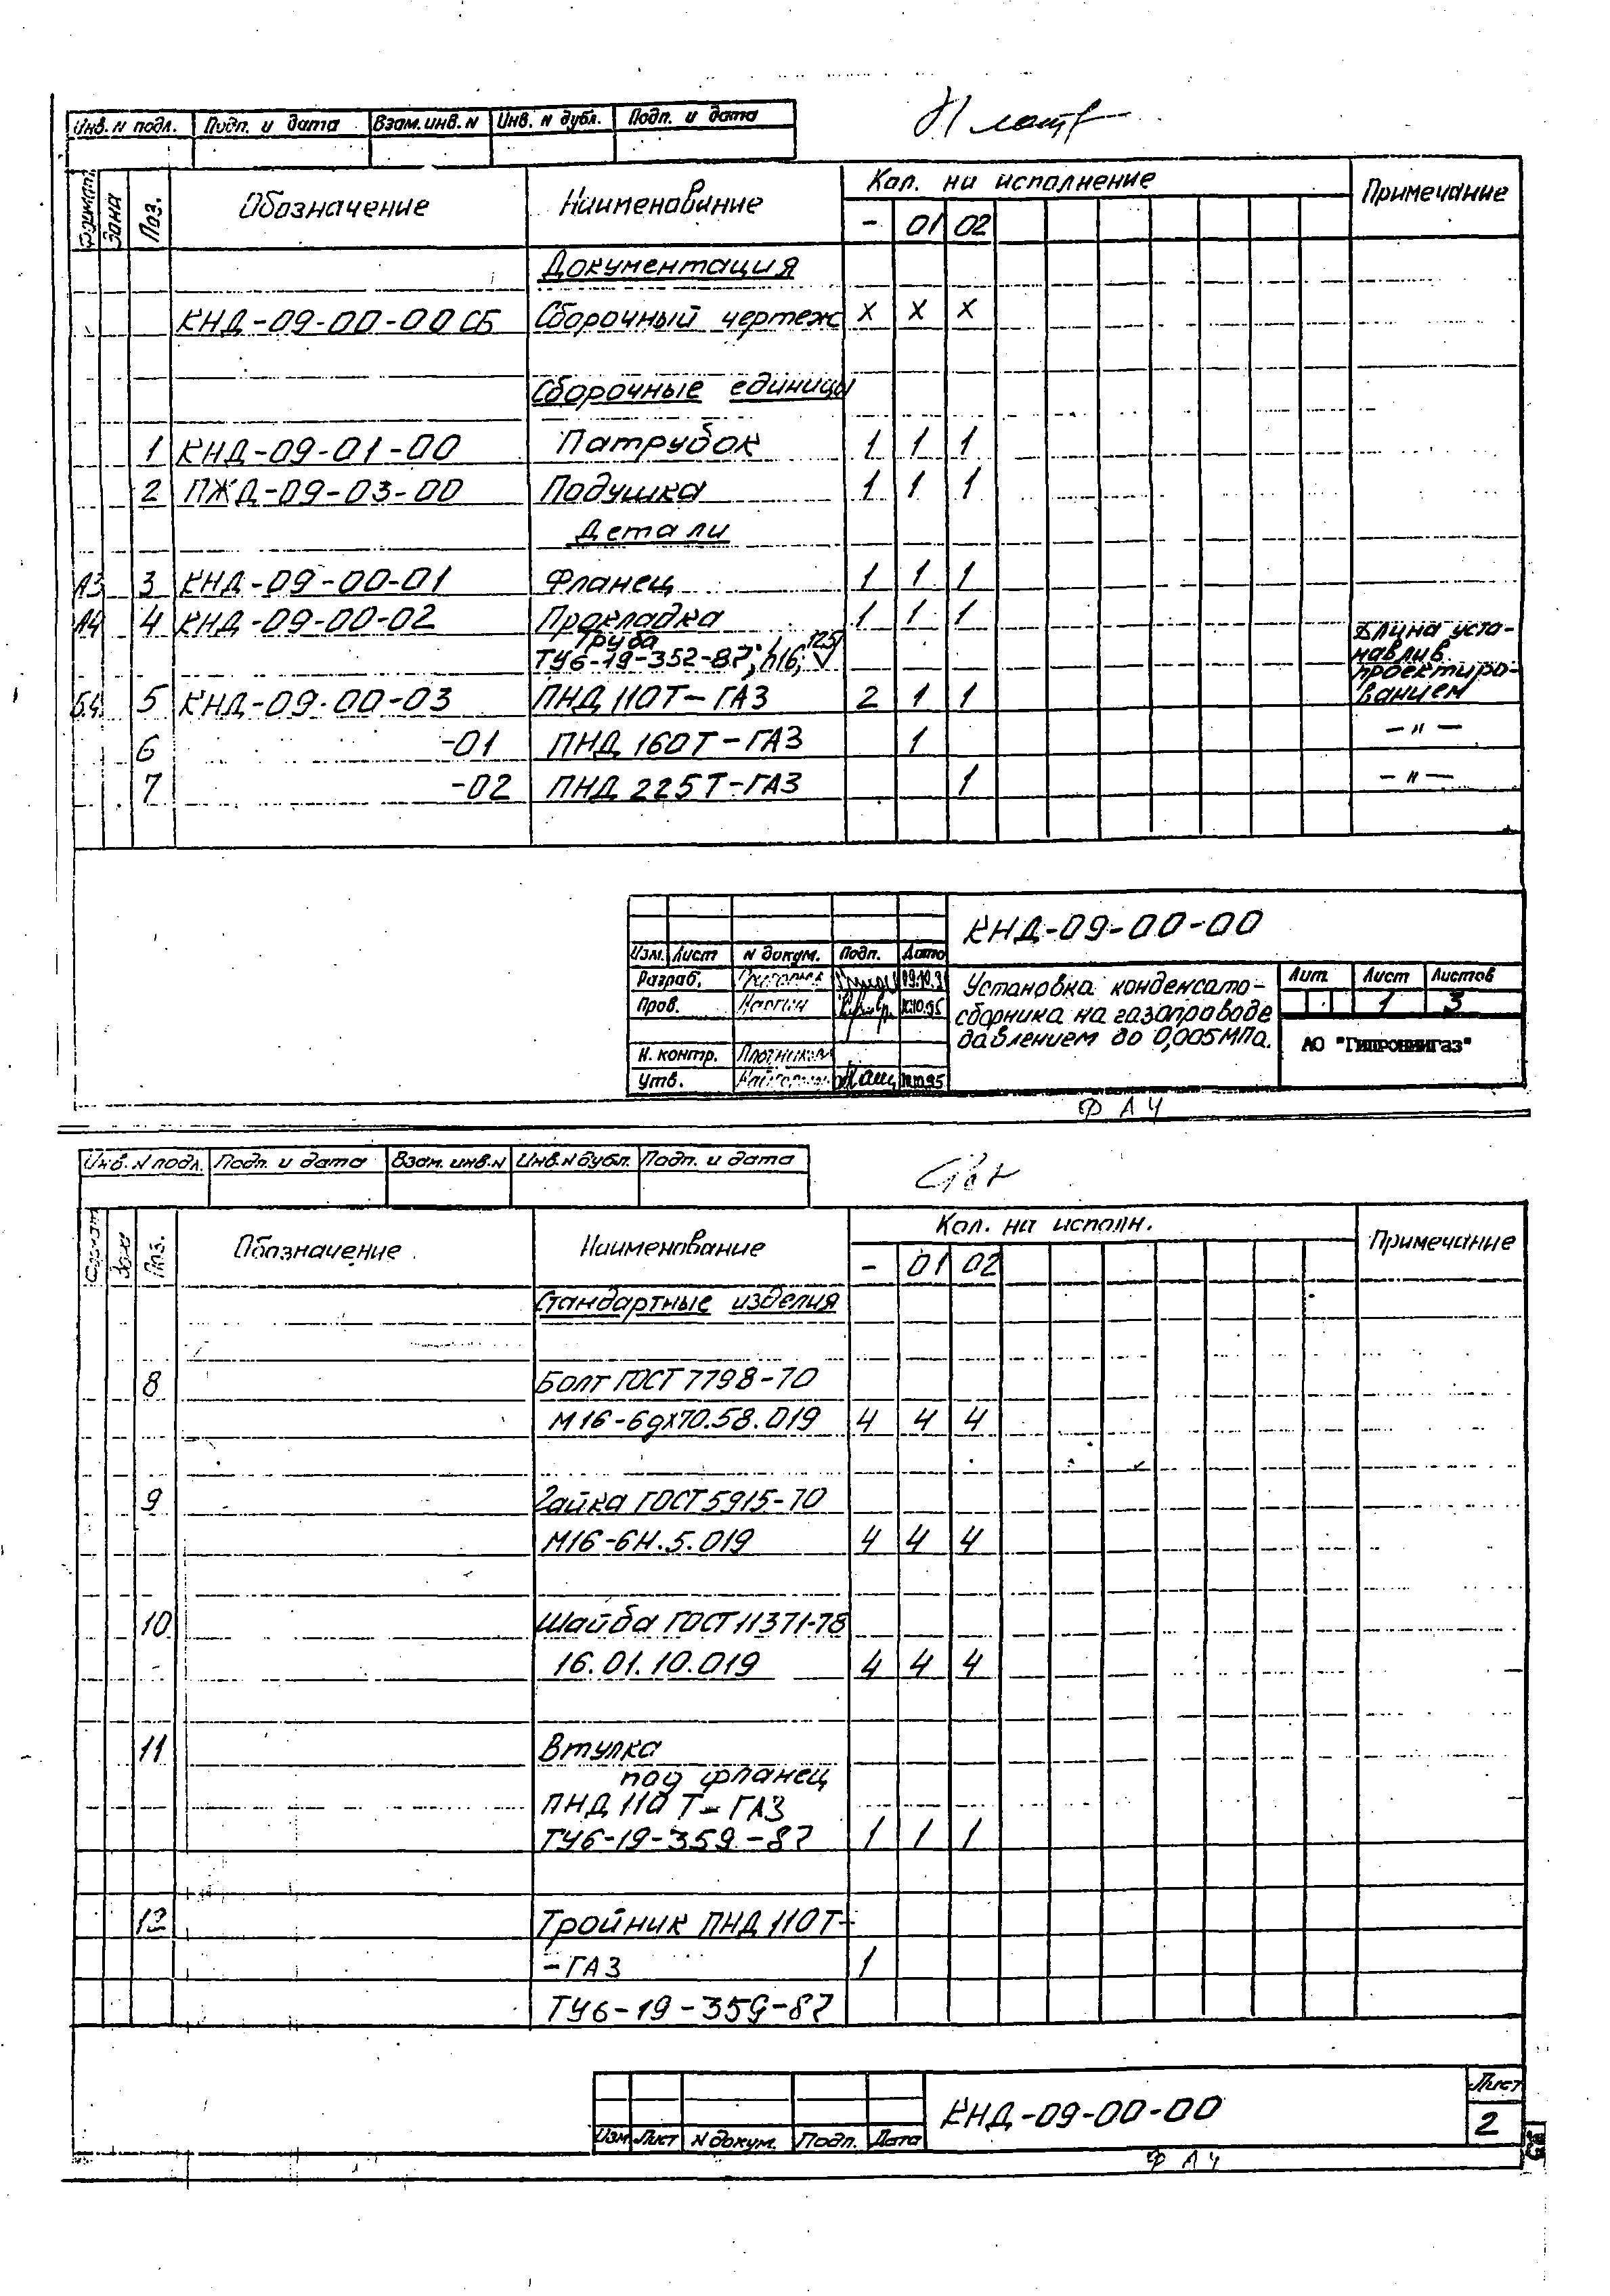 Инв. N подл. Подп. и дата Взам. инв. N Инв. N дубл. Подп. и дата
Формат Зона Поз. Обозначение Наименование Кол. на исполнение Примечание
- 01 02
Документация
КНД-09-00-00 СБ Сборочный чертеж X X X
Сборочные единицы
1 КНД-09-01-00 Патрубок 1 1 1
2 ПЖД-09-03-00 Подушка 1 1 1
Детали
А3 3 КНД-09-00-01 Фланец 1 1 1
А4 4 КНД-09-00-02 Прокладка 1 1 1
Труба
ТУ6-19-352-87; h16; 12,5
Длина уста-
навлив.
проектиро-
ванием
Б.ч. 5 КНД-09-00-03 ПНД 110Т-ГАЗ 2 1 1
6 -01 ПНД 160Т-ГАЗ 1 -"-
7 -02 ПНД 225Т-ГАЗ 1 -"-
КНД-09-00-00
Изм. Лист N докум. Подп. Дата
Разраб.
Пров. 10.95
Н. контр. Плотников
Утв. 10.95
Установка конденсато-
сборника на газопроводе
давлением до 0,005 МПа.
Лит. Лист Листов
1 3
АО "Гипрониигаз"
Ф А4
Инв. N подл. Подп. и дата Взам. инв. N Инв. N дубл. Подп. и дата
Формат Зона Поз. Обозначение Наименование Кол. на исполн. Примечание
- 01 02
Стандартные изделия
8 Болт ГОСТ 7798-70
М16-6gх70.58.019 4 4 4
9 Гайка ГОСТ 5915-70
М16-6Н.5.019 4 4 4
10 Шайба ГОСТ 11371-78
16.01.10.019 4 4 4
11 Втулка
под фланец
ПНД 110 Т-ГАЗ
ТУ6-19-359-87 1 1 1
12 Тройник ПНД 110Т-
-ГАЗ 1
ТУ6-19-359-87
Изм Лист N докум. Подп. Дата
КНД-09-00-00
Лист
2
Ф А4